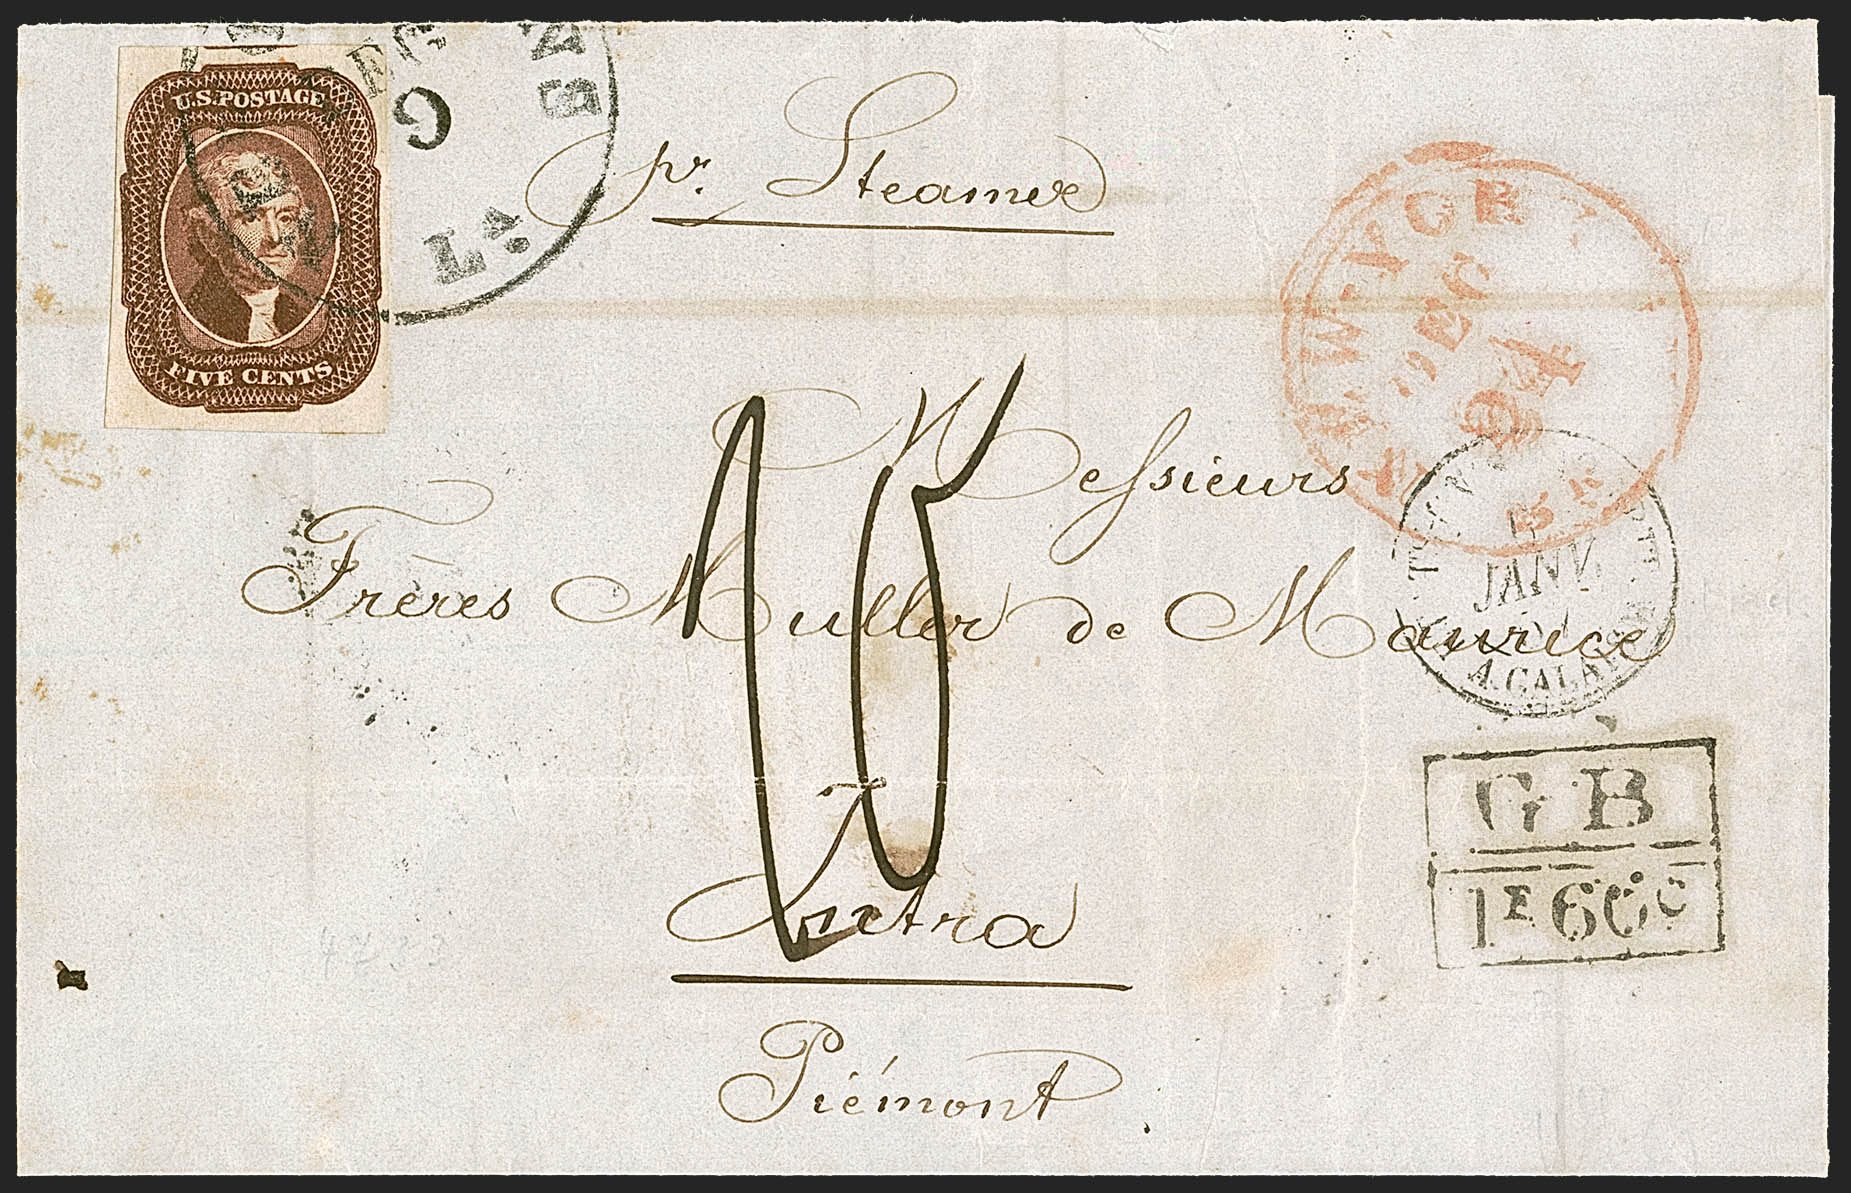 U.S. POSTAGE
FIVE CENTS
DEC
9
La.
pr. Steamer
NEW-YORK
DEC
24
Messieurs
Frères Muller de Maurice
Intra
Piémont
JANV.
A. CALAIS
GB
1F60C